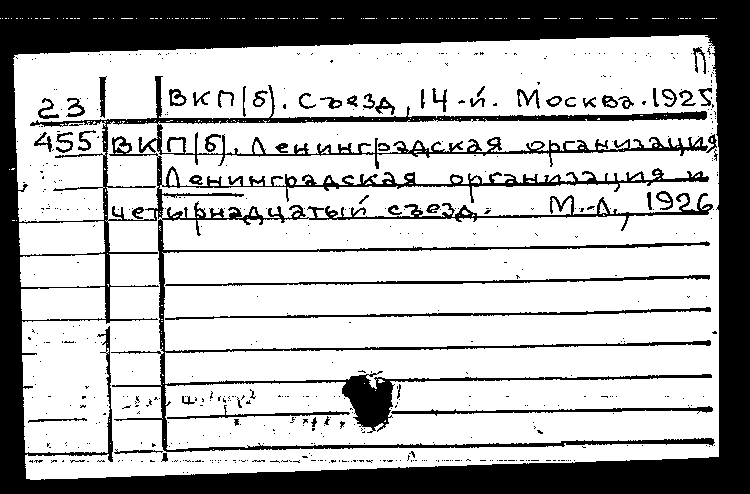 П
23 ВКП(б). Съезд, 14-й. Москва. 1925
455 ВКП(б). Ленинградская организация
Ленинградская организация и
четырнадцатый съезд. М.-Л., 1926